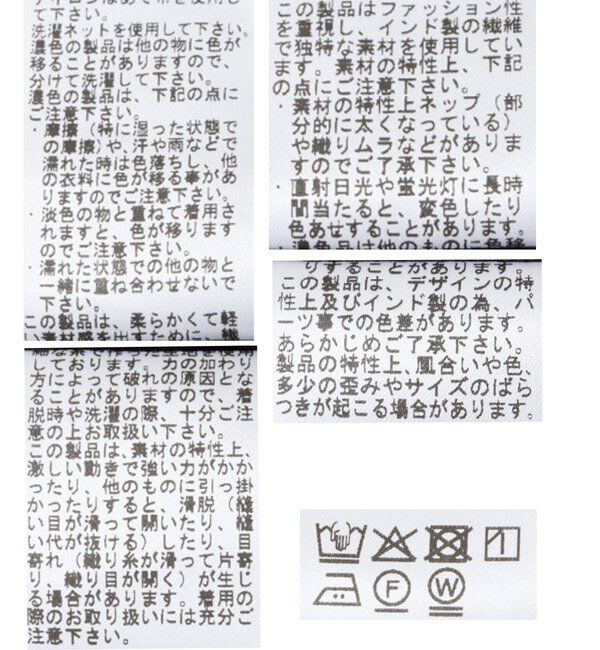 て下さい。
洗濯ネットを使用して下さい。
濃色の製品は他の物に色が
移ることがありますので、
分けて洗濯して下さい。
濃色の製品は、下記の点に
ご注意下さい。
・摩擦（特に湿った状態で
の摩擦）や、汗や雨などで
濡れた時は色落ちし、他
の衣料に色が移る事があ
りますのでご注意下さい。
・淡色の物と重ねて着用さ
れますと、色が移ります
のでご注意下さい。
・濡れた状態での他の物と
一緒に重ね合わせないで
下さい。
この製品は、柔らかくて軽
い素材感を出すために、繊
細な糸で作った生地を使用
しております。力の加わり
方によって破れの原因とな
ることがありますので、着
脱時や洗濯の際、十分ご注
意の上お取扱い下さい。
この製品は、素材の特性上、
激しい動きで強い力がかか
ったり、他のものに引っ掛
かったりすると、滑脱（縫
い目が滑って開いたり、縫
い代が抜ける）したり、目
寄れ（織り糸が滑って片寄
り、織り目が開く）が生じ
る場合があります。着用の
際のお取り扱いには充分ご
注意下さい。
この製品はファッション性
を重視し、インド製の繊維
で独特な素材を使用してい
ます。素材の特性上、下記
の点にご注意下さい。
・素材の特性上ネップ（部
分的に太くなっている）
や織りムラなどがありま
すのでご了承下さい。
・直射日光や蛍光灯に長時
間当たると、変色したり
色あせすることがあります。
濃色品は他のものに色移
りすることがあります。
この製品は、デザインの特
性上及びインド製の為、パ
ーツ事での色差があります。
あらかじめご了承下さい。
製品の特性上、風合いや色、
多少の歪みやサイズのばら
つきが起こる場合があります。
F W